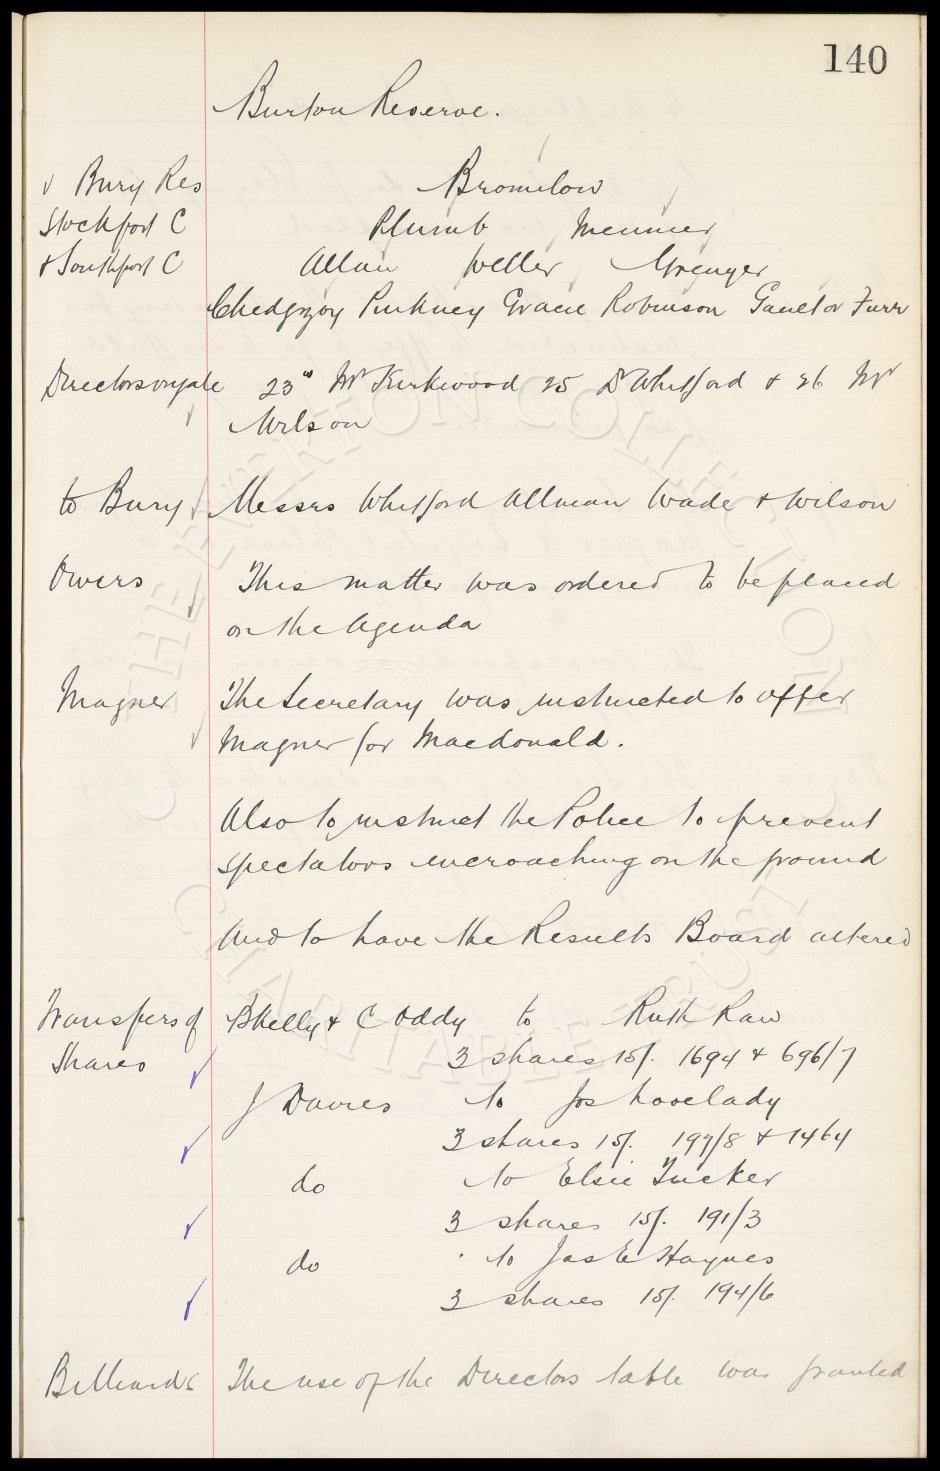 140
Burton Reserve.
v Bury Res Bromilow
Stockport C Plumb Meunier
v Southport C Allan Weller Grenyer
Chedgzoy Pinkney Gracie Robinson Gault or Furr
Directors on gate 23rd Mr Kirkwood 25 Dr Whitford & 26 Mr
Wilson
to Bury Messrs Whitford Allman Wade & Wilson
This matter was ordered to be placed
on the Agenda
Magner The Secretary was instructed to offer
Magner for Macdonald.
Also to instruct the Police to prevent
spectators encroaching on the ground
And to have the Results Board altered
Transfers of B Kelly & C Oddy to Ruth Raw
Shares 3 shares 15/. 1694 & 696/7
J Davies to Jos Lovelady
3 shares 15/. 197/8 & 1464
do to Elsie Tucker
3 shares 15/. 191/3
do to Jas E Haynes
3 shares 15/. 194/6
Billiards The use of the Directors table was granted
THE EVERTON COLLECTION
CHARITABLE TRUST